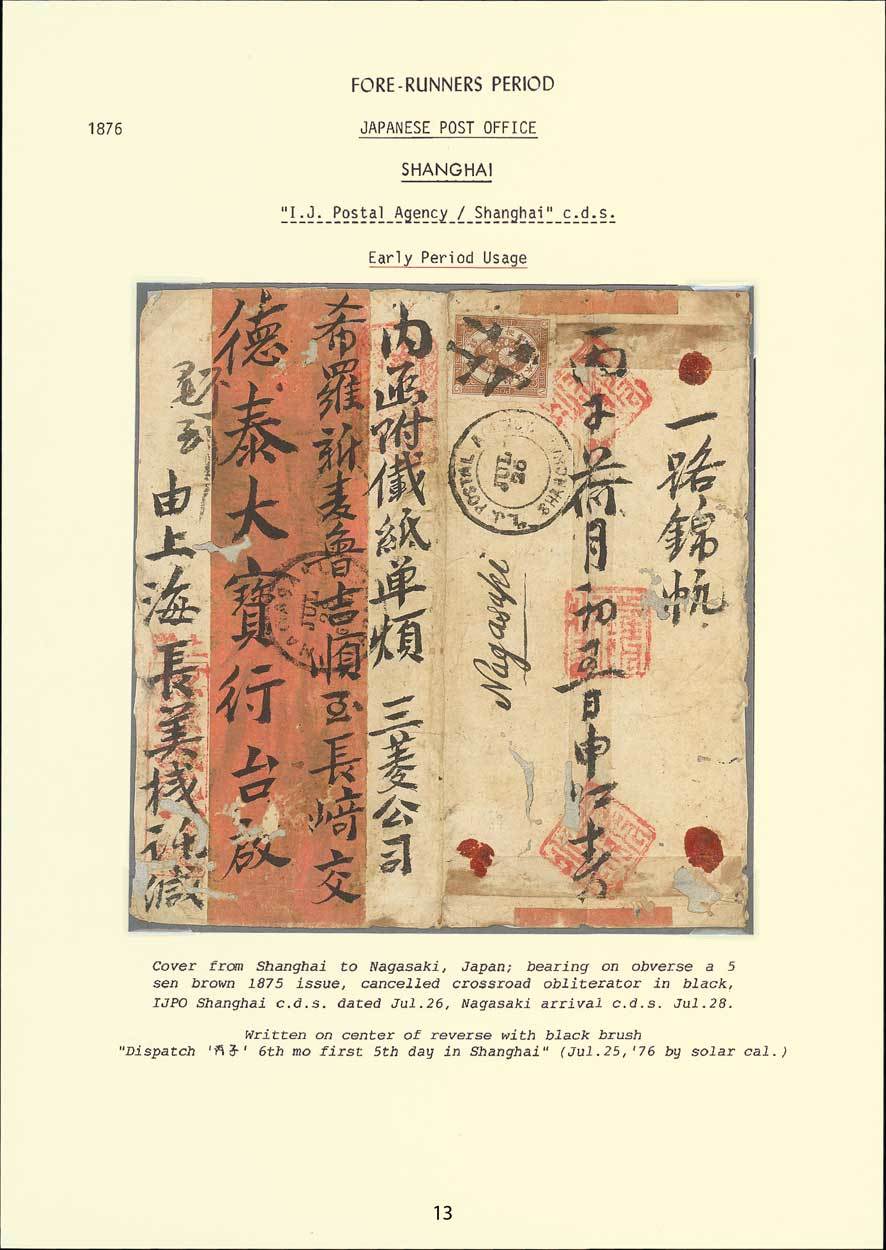 FORE-RUNNERS PERIOD
1876
JAPANESE POST OFFICE
SHANGHAI
"I.J. Postal Agency / Shanghai" c.d.s.
Early Period Usage
一路錦帆
丙子荷月初五日申
I.J. POSTAL AGENCY SHANGHAI
JUL 26
Nagasaki
内函附儎紙单煩 三菱公司
希羅新麦魯吉順至長﨑交
德泰大寶行台啟
由上海長美棧
JUL
Cover from Shanghai to Nagasaki, Japan; bearing on obverse a 5
sen brown 1875 issue, cancelled crossroad obliterator in black,
IJPO Shanghai c.d.s. dated Jul.26, Nagasaki arrival c.d.s. Jul.28.
Written on center of reverse with black brush
"Dispatch '丙子' 6th mo first 5th day in Shanghai" (Jul.25,'76 by solar cal.)
13